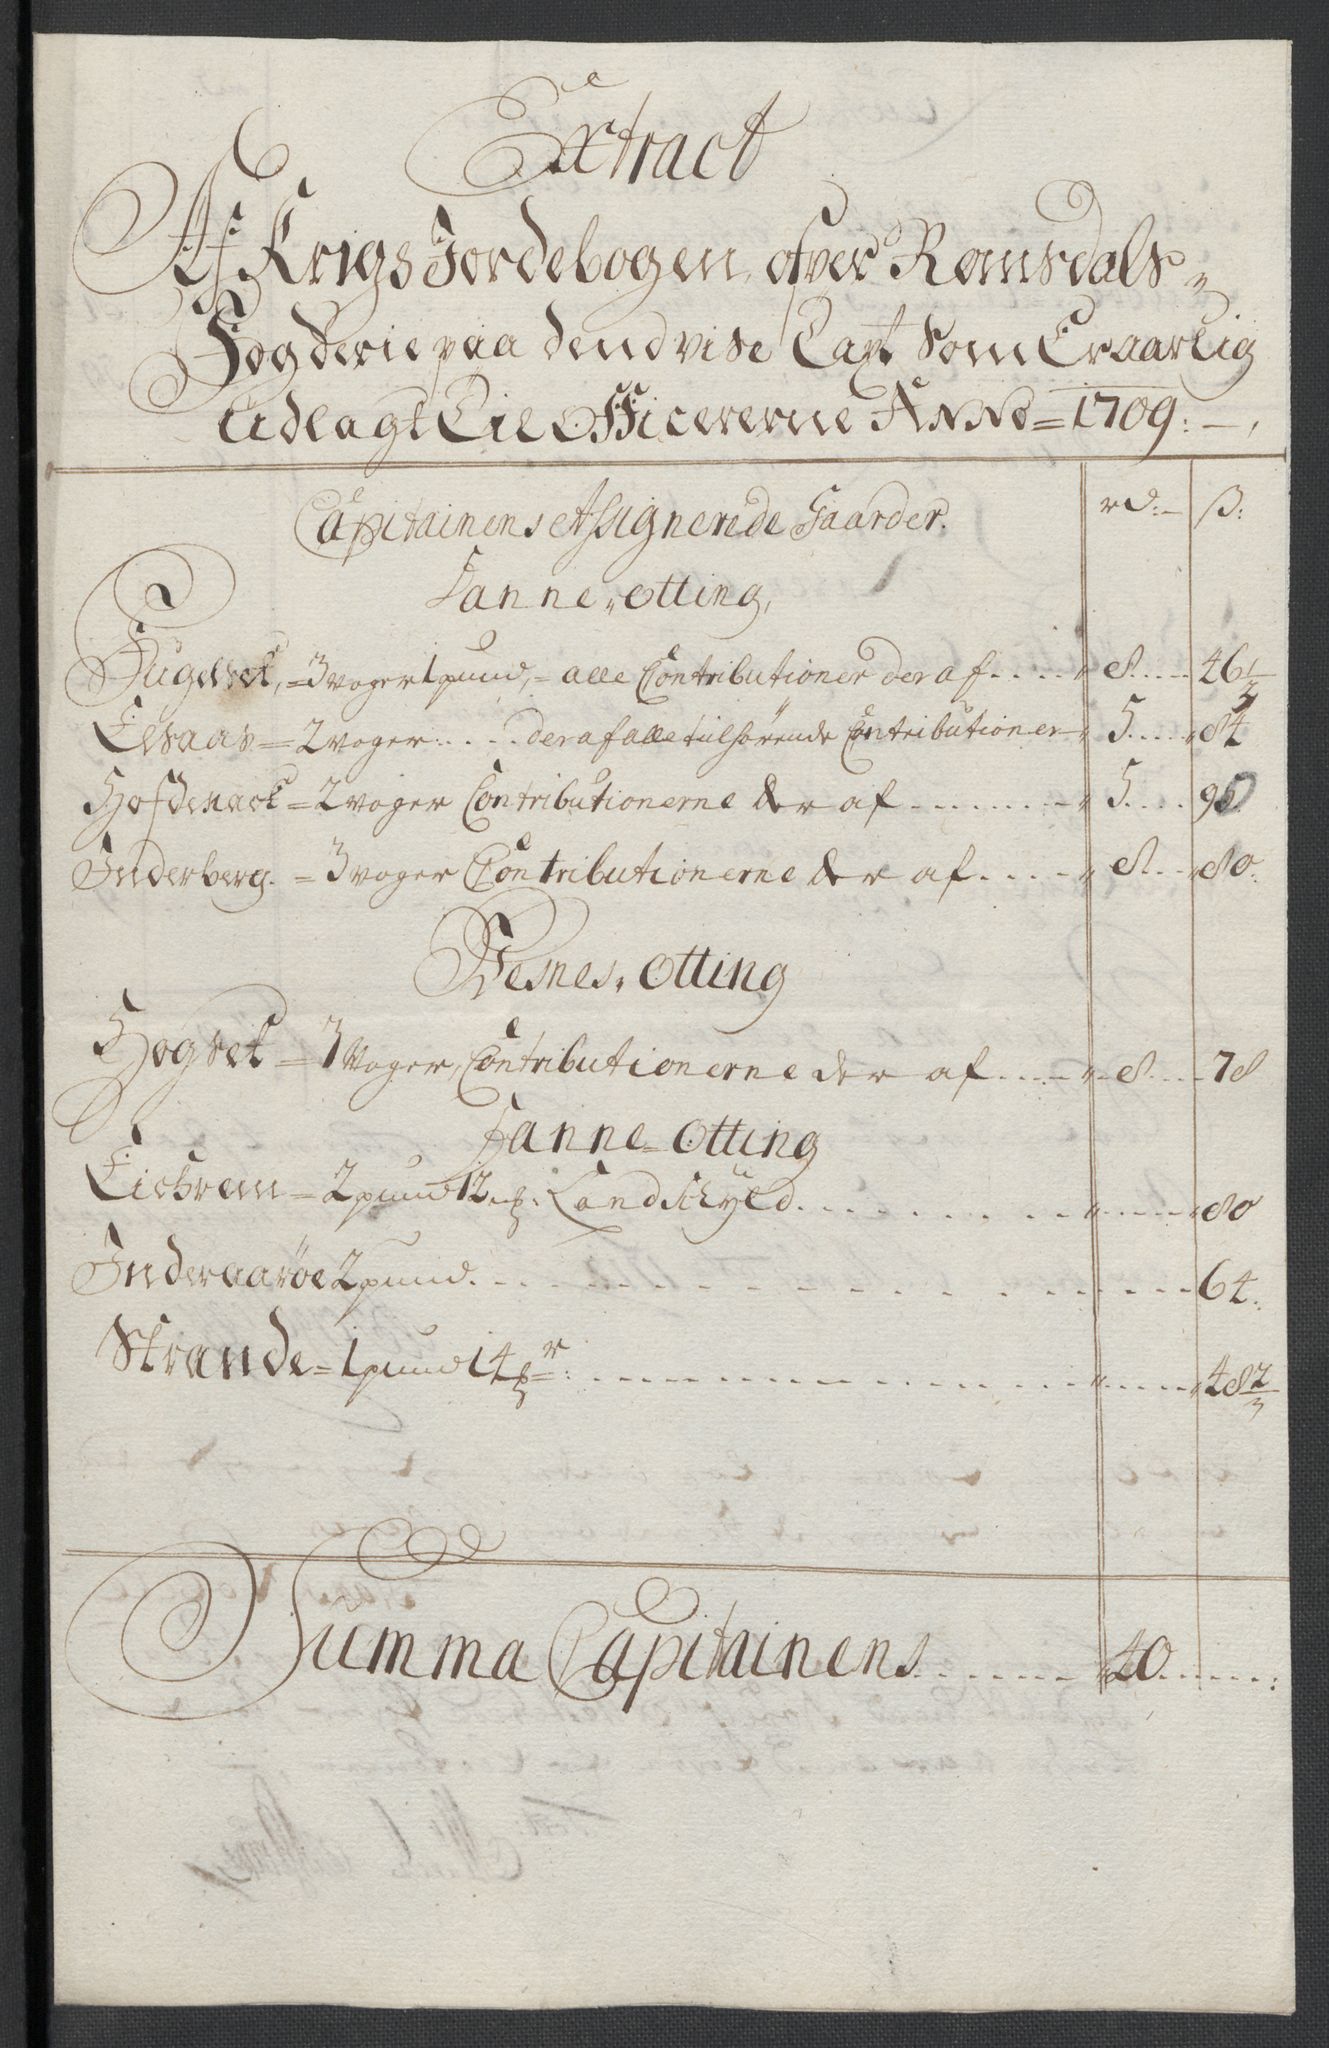 Extract
Af Krigs Jordebogen ofver Romsdals
Fogderie paa dend vise Capt Som Er aarlig
Udlagt Til Officererne Anno = 1709: —
Capitainens Assignerede Gaarder. rd: ß:
Fanne, otting,
Fugelset, = 3 voger 1 pund, = alle Contributioner der af .... 8 .... 46 1/2
Elsaas = 2 voger .... der af alle tilhörende Contributioner 5 .... 84
Hofdenack = 2 voger Contributionerne der af ........ 5 .... 90
Inderberg. = 3 voger Contributionerne der af .... 8 .... 80.
Wesnes, Otting
Hogset = 3 Voger, Contributionerne der af .... 8 .... 78
Fanne = Otting
Eichrem = 2 pund 12 ℔: Landschyld .... 80
Inderaaröe 2 pund .... 64.
Strande = 1 pund 14 ℔r: .... 48 2/3
Summa Capitainens ...... 40 ......